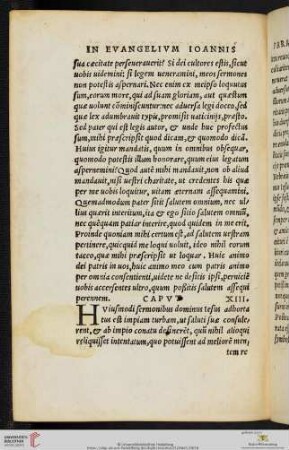 IN EVANGELIVM IOANNIS
sua cæcitate perseuerauerit? Si dei cultores estis, sicut
uobis uidemini: si legem ueneramini, meos sermones
non potestis aspernari. Nec enim ex meipso loquutus
sum, eorum more, qui ad suam gloriam, aut quæstum
quæ uolunt cōminiscuntur: nec aduersa legi doceo, sed
quæ lex adumbrauit typis, promisit uaticinijs, præsto.
Sed pater qui est legis autor, & unde huc profectus
sum, mihi præscripsit quid dicam, & quomodo dicā.
Huius igitur mandatis, quum in omnibus obsequar,
quomodo potestis illum honorare, quum eius legatum
aspernemini? Quod autē mihi mandauit, non ob aliud
mandauit, nisi uestri charitate, ut credentes his quæ
per me uobis loquitur, uitam æternam assequamini.
Quemadmodum pater sitit salutem omnium, nec ul-
lius quærit interitum, ita & ego sitio salutem omniū,
nec quēquam patiar interire, quod quidem in me erit.
Proinde quoniam mihi certum est, ad salutem uestram
pertinere, quicquid me loqui uoluit, ideo nihil eorum
taceo, quæ mihi præscripsit ut loquar. Huic animo
dei patris in uos, huic animo meo cum patris animo
per omnia consentienti, uidete ne desitis ipsi, perniciē
uobis accersentes ultro, quum possitis salutem assequi
perennem. CAPVT XIII.
Huiusmodi sermonibus dominus Iesus adhorta
tus est impiam turbam, ut saluti suæ consule-
rent, & ab impio conatu desinerēt, quū nihil alioqui
reliquisset intentatum, quo potuissent ad meliorē men,
tem re